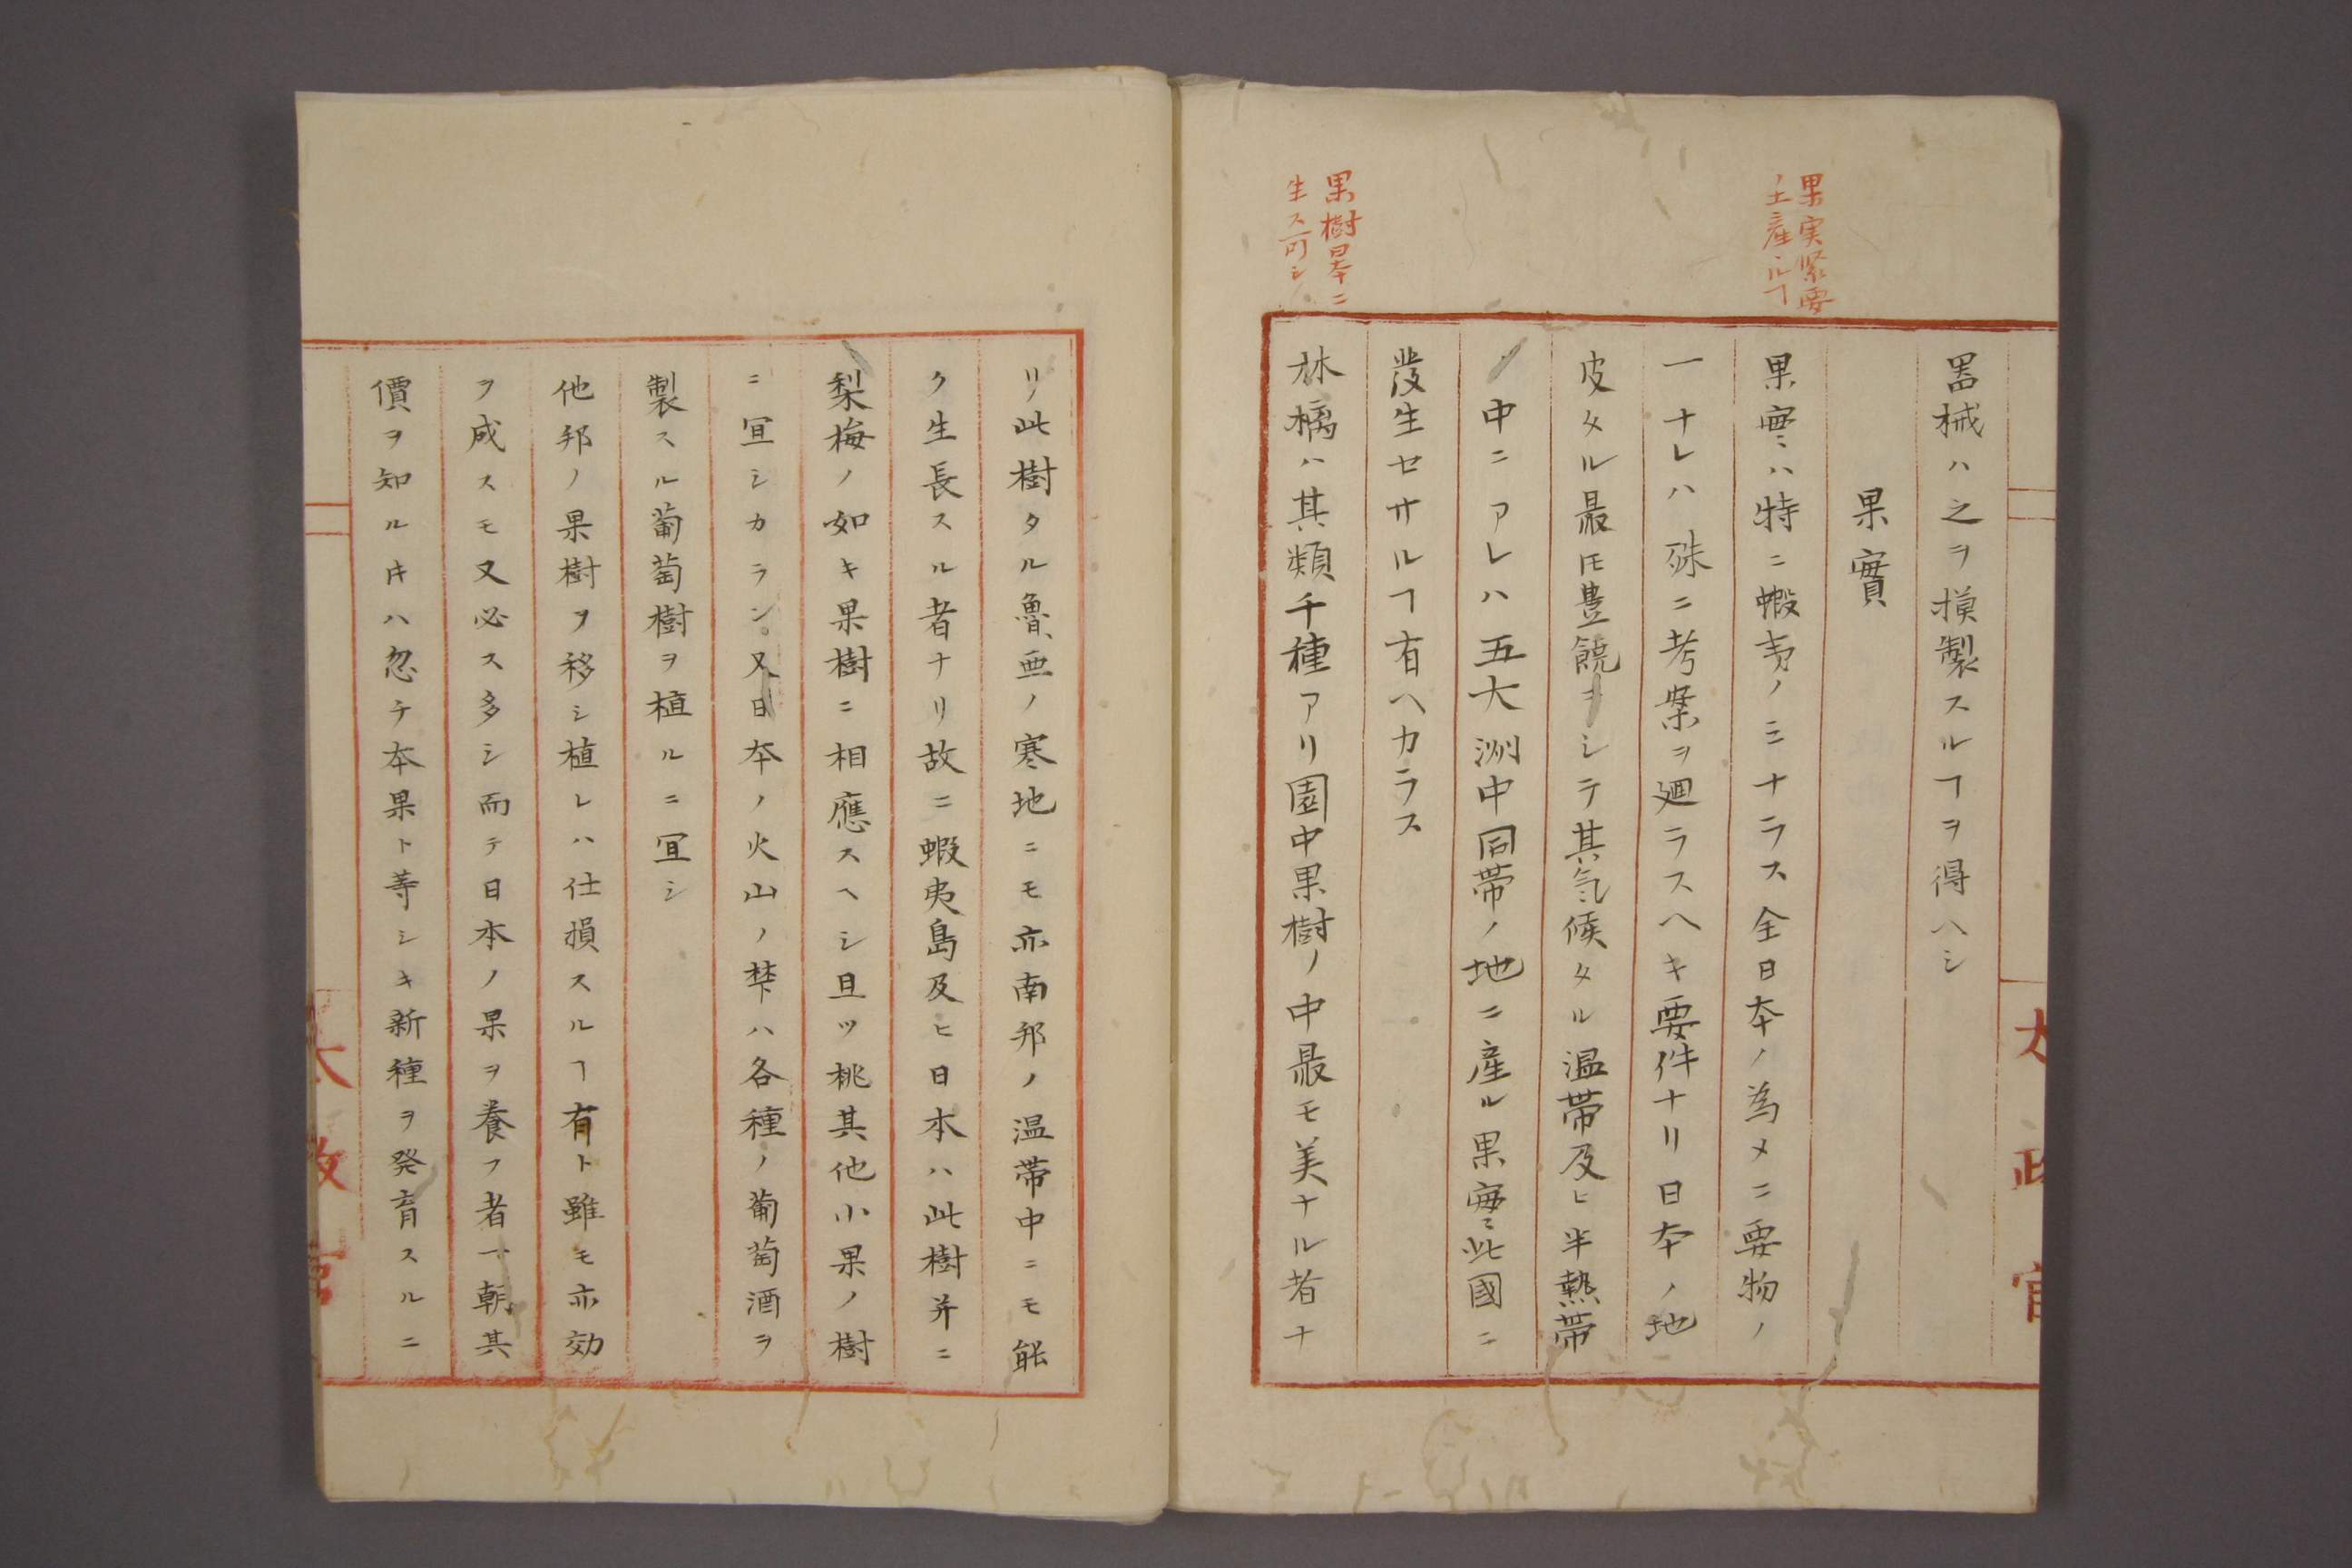 果実緊要
ノ土産ニルヿ
果樹日本ニ
生ス可シ
器械ハ之ヲ摸製スルヿヲ得ヘシ
果實
果實ハ特ニ蝦夷ノミナラス全日本ノ為メニ要物ノ
一ナレハ殊ニ考案ヲ廻ラスヘキ要件ナリ日本ノ地
皮タル最モ豊饒ヲシテ其気候タル温帯及ヒ半熱帯
ノ中ニアレハ五大洲中同帯ノ地ニ産ル果實此國ニ
發生セサルヿ有ヘカラス
林檎ハ其類千種アリ園中果樹ノ中最モ美ナル者ナ
太政官
リ此樹タル魯亜ノ寒地ニモ亦南邦ノ温帯中ニモ能
ク生長スル者ナリ故ニ蝦夷島及ヒ日本ハ此樹并ニ
梨梅ノ如キ果樹ニ相應スヘシ且ツ桃其他小果ノ樹
ニ宜シカラン又日本ノ火山ノ禁ハ各種ノ葡萄酒ヲ
製スル葡萄樹ヲ植ルニ宜シ
他邦ノ果樹ヲ移シ植レハ仕損スルヿ有ト雖モ亦効
ヲ成スモ又必ス多シ而テ日本ノ果ヲ養フ者一朝其
價ヲ知ル𪜈ハ忽チ本果ト等シキ新種ヲ発育スルニ
太政官